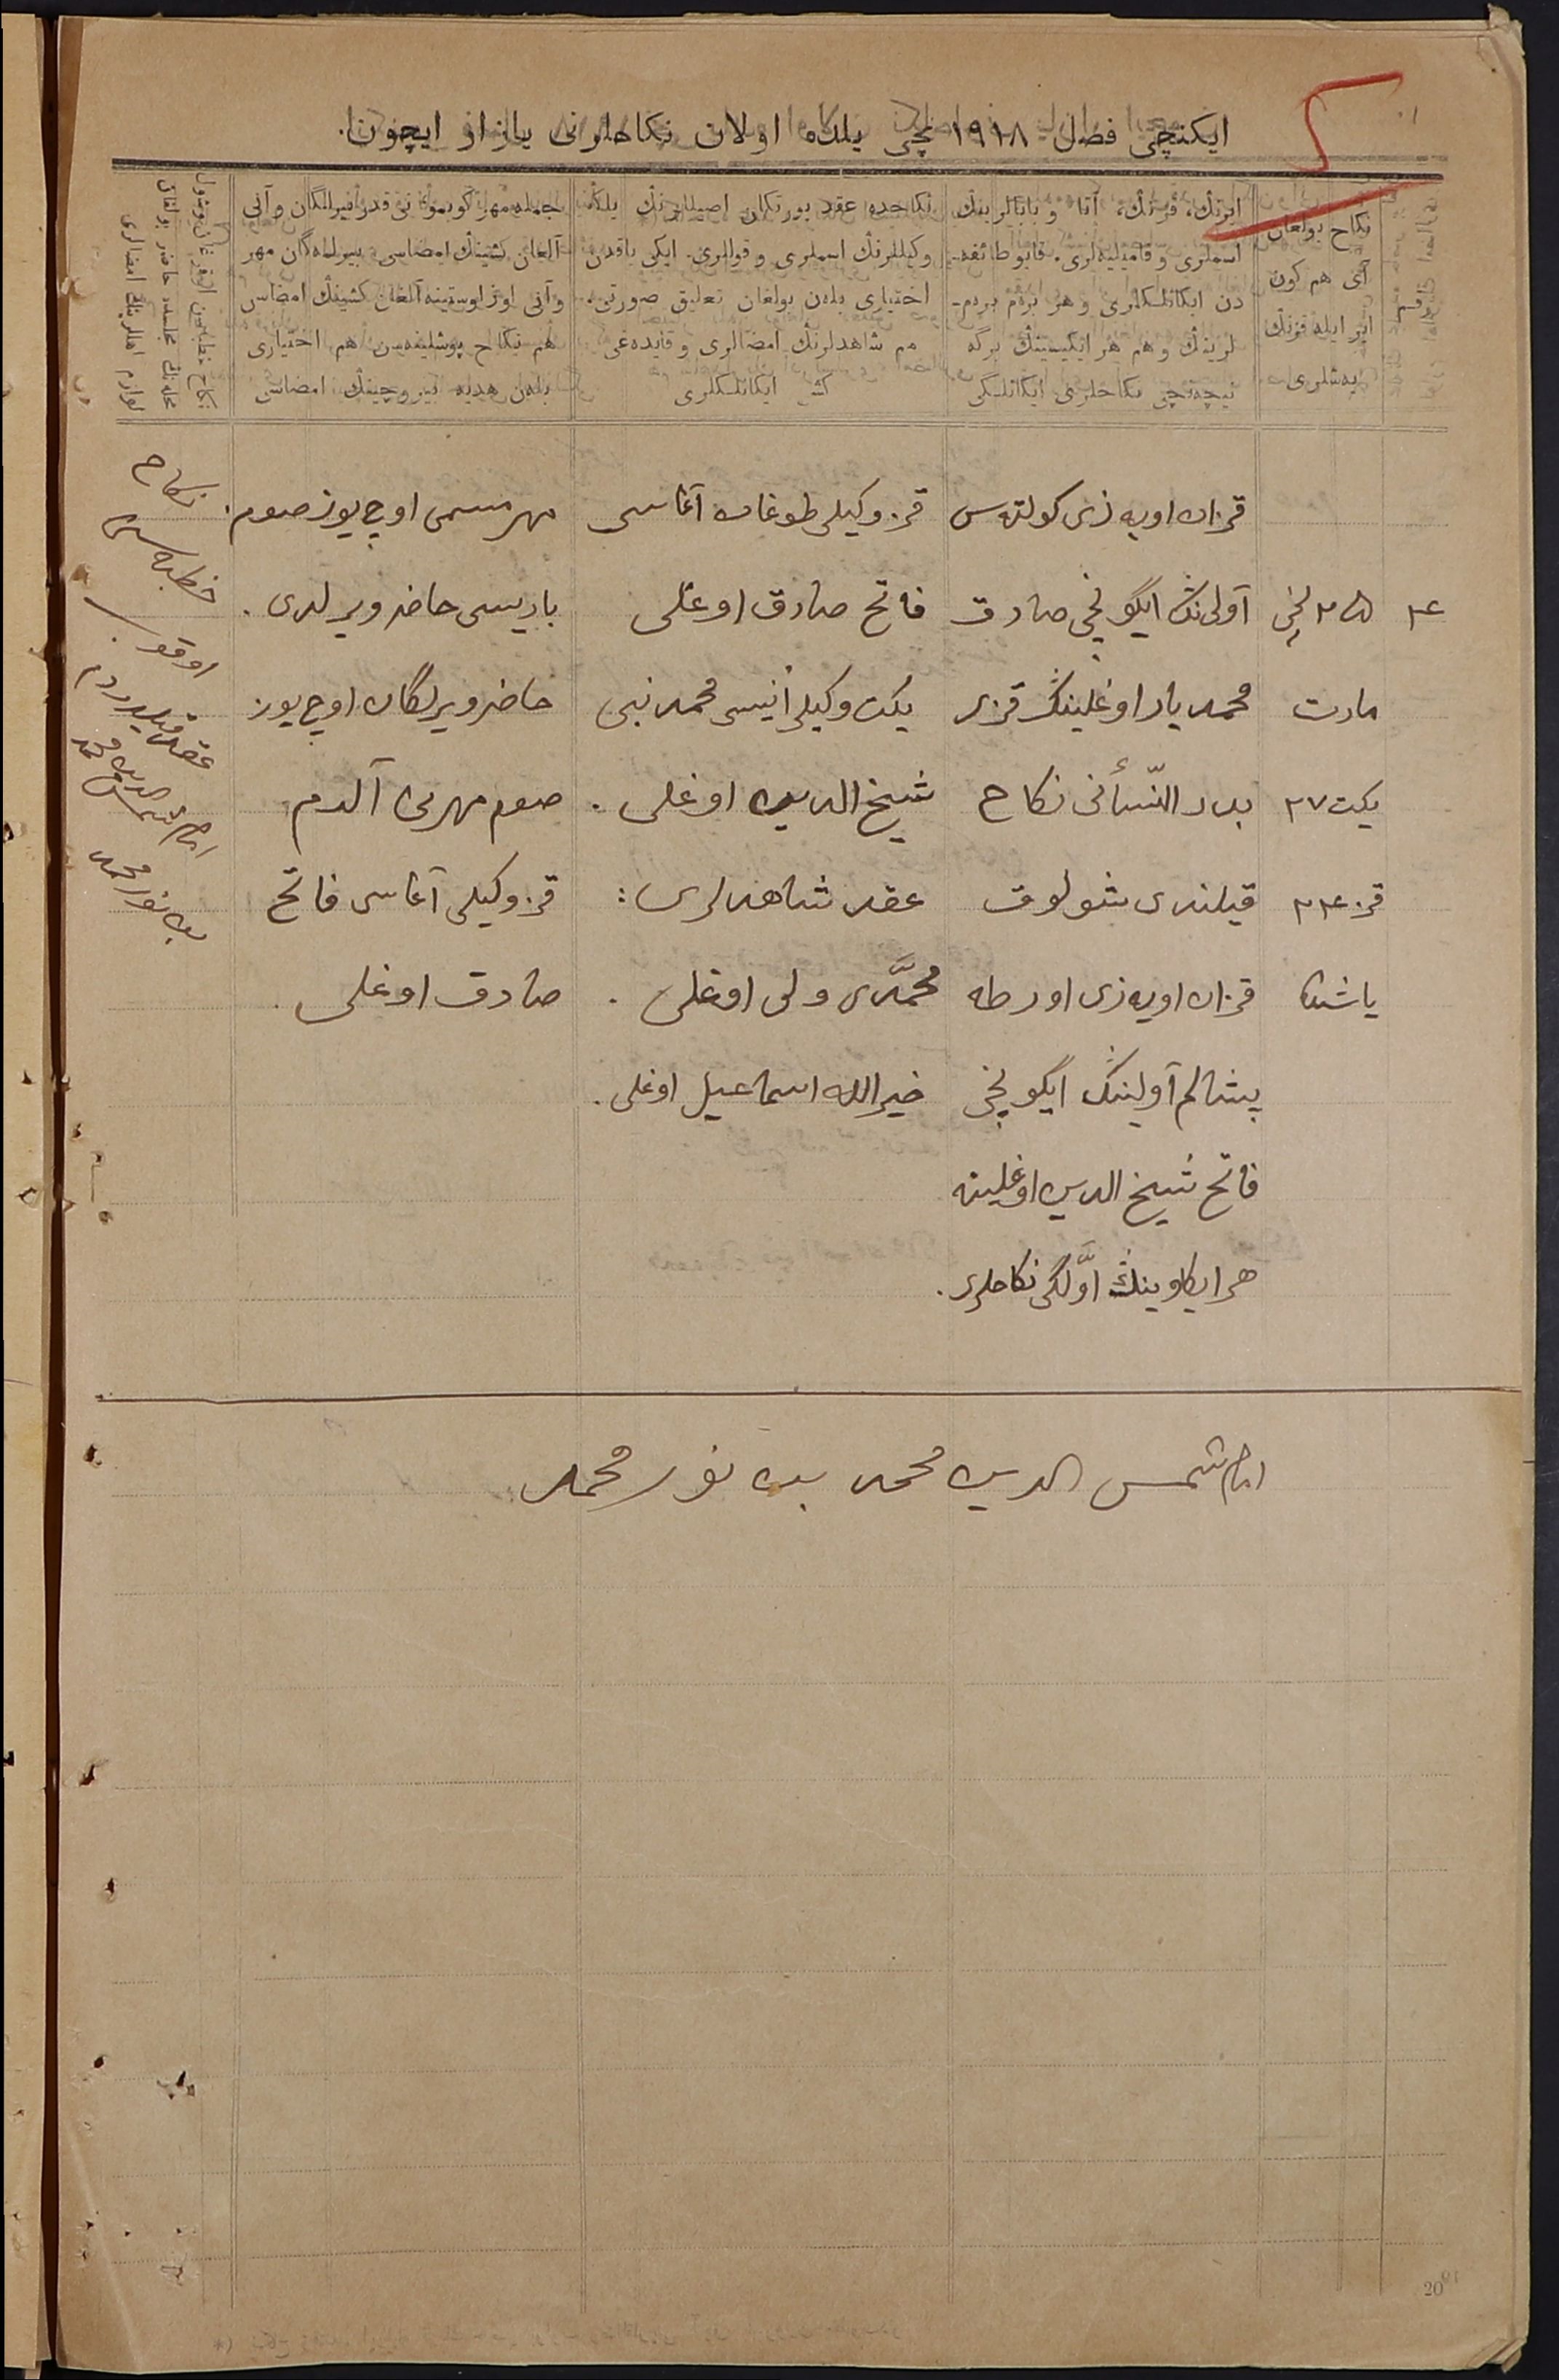 ایكنچی فصل ١٩١٨ نچی یلده اولان نكاحلرنی یازار ایچون.
رقم
نكاح بولغان
آی هم كون
ایر ایله قزنڭ
یه‌شلری
ایرنڭ، قزنڭ، آتا و بابالرینڭ
اسملری و فامیلیه‌لری. قایو طائفه‌-
دن ایكانلكلری و هر بردم بردم-
لرینڭ و هم هر ایكیسینڭ برگه
نیچه‌نچی نكاحلری ایكانلیگی
نكاحده عقد یورتكان اصیللرنڭ یلكه
وكیللرنڭ اسملری و قوللری. ایكی یاقدن
اختیاری بلەن بولغان تعلیق صورتی
هم شاهدلرنڭ امضالری و قایده‌غی
كشی ایكانلكلری
جمله مهر كوبموٴنی قدر بیرلگان و آنی
آلغان كشینڭ امضاسی بیرلمەگان مهر
و آنی اوز اوستینه آلغان كشینڭ امضاسی
هم نكاح پوشلینه‌سن هم اختیاری
بلەن هدیه بیروچینڭ امضاسی
٢٤
٢٥ نچی
مارت
یكت ٢٧
قز ٢٤
یاشنده
قزان اویه‌زی كولته‌س
آولی‌نڭ ایگونچی صادق
محمد یار اوغلینڭ قزی
بدر النّسأنی نكاح
قیلندی شولوق
قزان اویه‌زی اورطه
پیشالم آولینڭ ایگونچی
فاتح شیخ الدین اوغلینه
هر ایكاوینڭ اوّلگی نكاحلری.
قز وكیلی طوغان آغاسی
فاتح صادق اوغلی
یكت وكیلی اینیسی محمد نبی
شیخ الدین اوغلی.
عقد شاهدلری:
محمّدی ولی اوغلی.
خیرالله اسماعیل اوغلی.
مهر مسمی اوچ یوز صوم.
باریسی حاضر ویرلدی.
حاضر ویرلگان اوچ یوز
صوم مهرنی آلدم
قز وكیلی آغاسی فاتح
صادق اوغلی.
نكاح
خطبه‌سن
اوقوب
عقد قیلدردم
امام شمس الدین محمد
بن نور محمد
امام شمس الدین محمد بن نور محمد
20